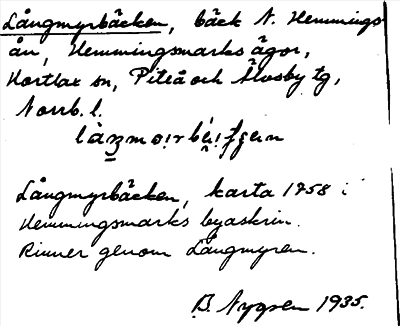 Långmyrbäcken, bäck N. Hemmings
ån, Hemmingsmarks ägor,
Hortlax sn, Piteå och Älvsby tg,
Norrb. l.
Långmyrbäcken, karta 1858 i
Hemmingsmarks byaskrin.
Rinner genom Långmyren.
1935.